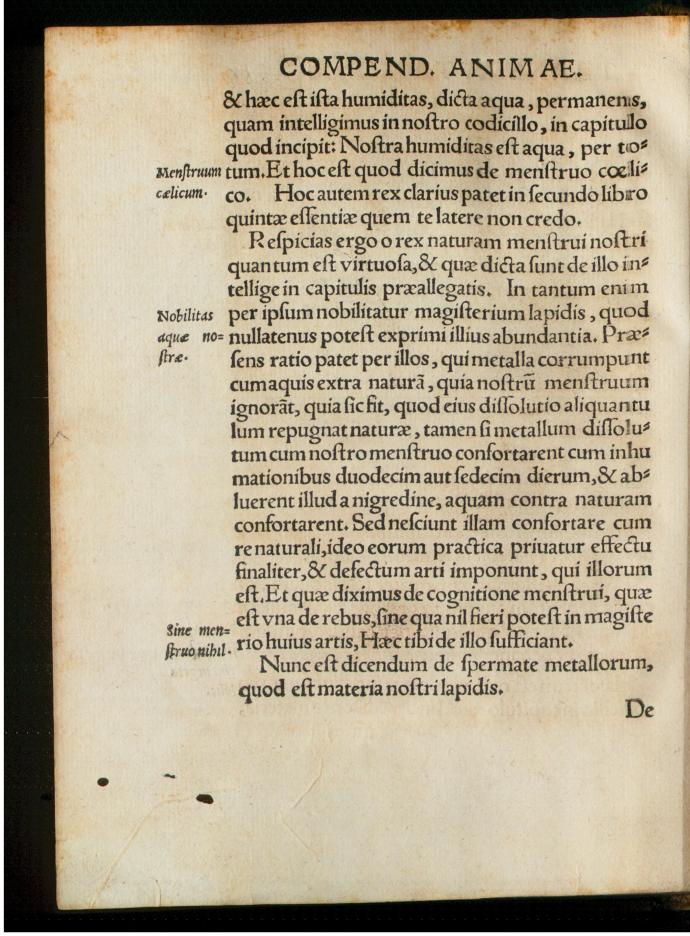 COMPEND. ANIMAE.
& hæc eſt iſta humiditas, dicta aqua, permanens,
quam intelligimus in noſtro codicillo, in capitulo
quod incipit: Noſtra humiditas eſt aqua, per to⸗
Menſtruum
cælicum.
tum. Et hoc eſt quod dicimus de menſtruo cœli⸗
co. Hoc autem rex clarius patet in ſecundo libro
quintæ eſſentiæ quem te latere non credo.
Reſpicias ergo o rex naturam menſtrui noſtri
quantum eſt virtuoſa, & quæ dicta ſunt de illo in⸗
tellige in capitulis præallegatis. In tantum enim
Nobilitas
aquæ no=
ſtræ.
per ipſum nobilitatur magiſterium lapidis, quod
nullatenus poteſt exprimi illius abundantia. Præ⸗
ſens ratio patet per illos, qui metalla corrumpunt
cum aquis extra naturã, quia noſtrũ menſtruum
ignorãt, quia ſic fit, quod eius diſſolutio aliquantu
lum repugnat naturæ, tamen ſi metallum diſſolu⸗
tum cum noſtro menſtruo confortarent cum inhu
mationibus duodecim aut ſedecim dierum, & ab⸗
luerent illud a nigredine, aquam contra naturam
confortarent. Sed neſciunt illam confortare cum
re naturali, ideo eorum practica priuatur effectu
finaliter, & defectum arti imponunt, qui illorum
eſt. Et quæ diximus de cognitione menſtrui, quæ
Sine men=
ſtruo nihil.
eſt vna de rebus, ſine qua nil fieri poteſt in magiſte
rio huius artis, Hæc tibi de illo ſufficiant.
Nunc eſt dicendum de ſpermate metallorum,
quod eſt materia noſtri lapidis.
De